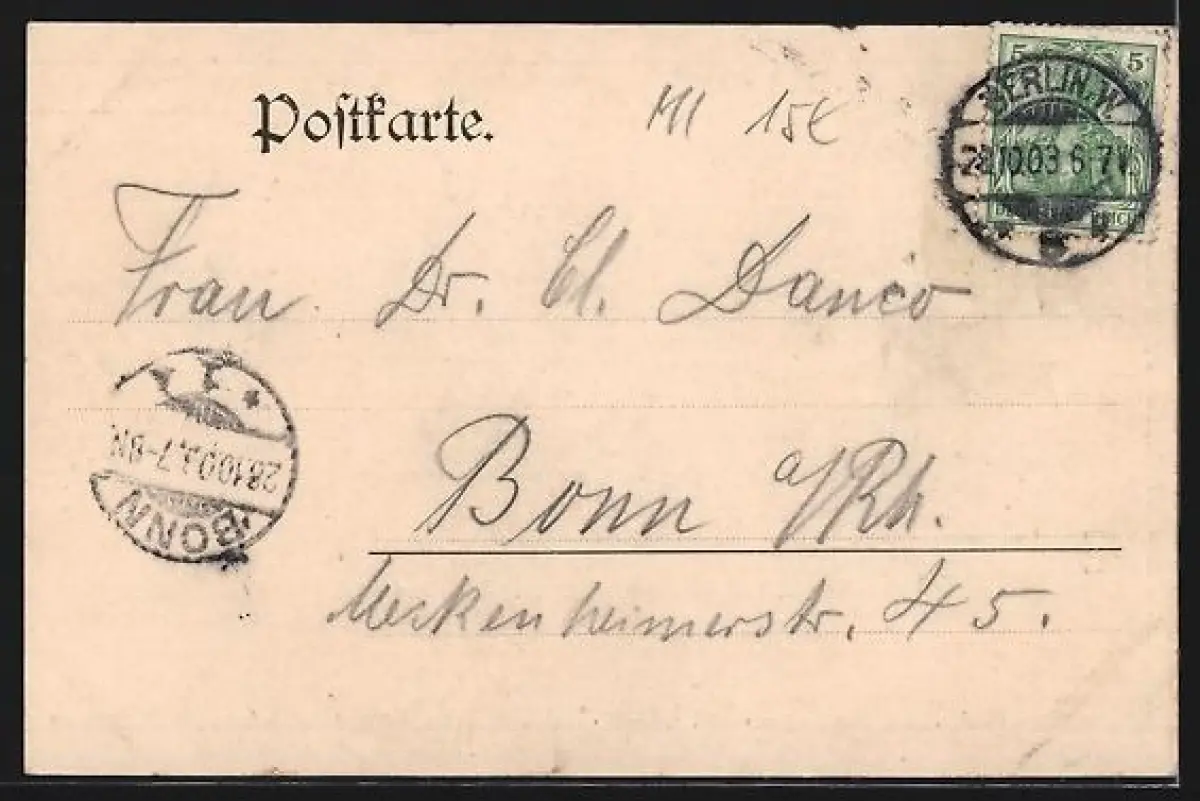 Postkarte.
15€
5 5
BERLIN. W.
28.10.03. 6-7V.
REICH
Frau Dr. Cl. Danco
Bonn a/Rh.
Meckenheimerstr. 45.
28.10.03. 7-8N.
BONN